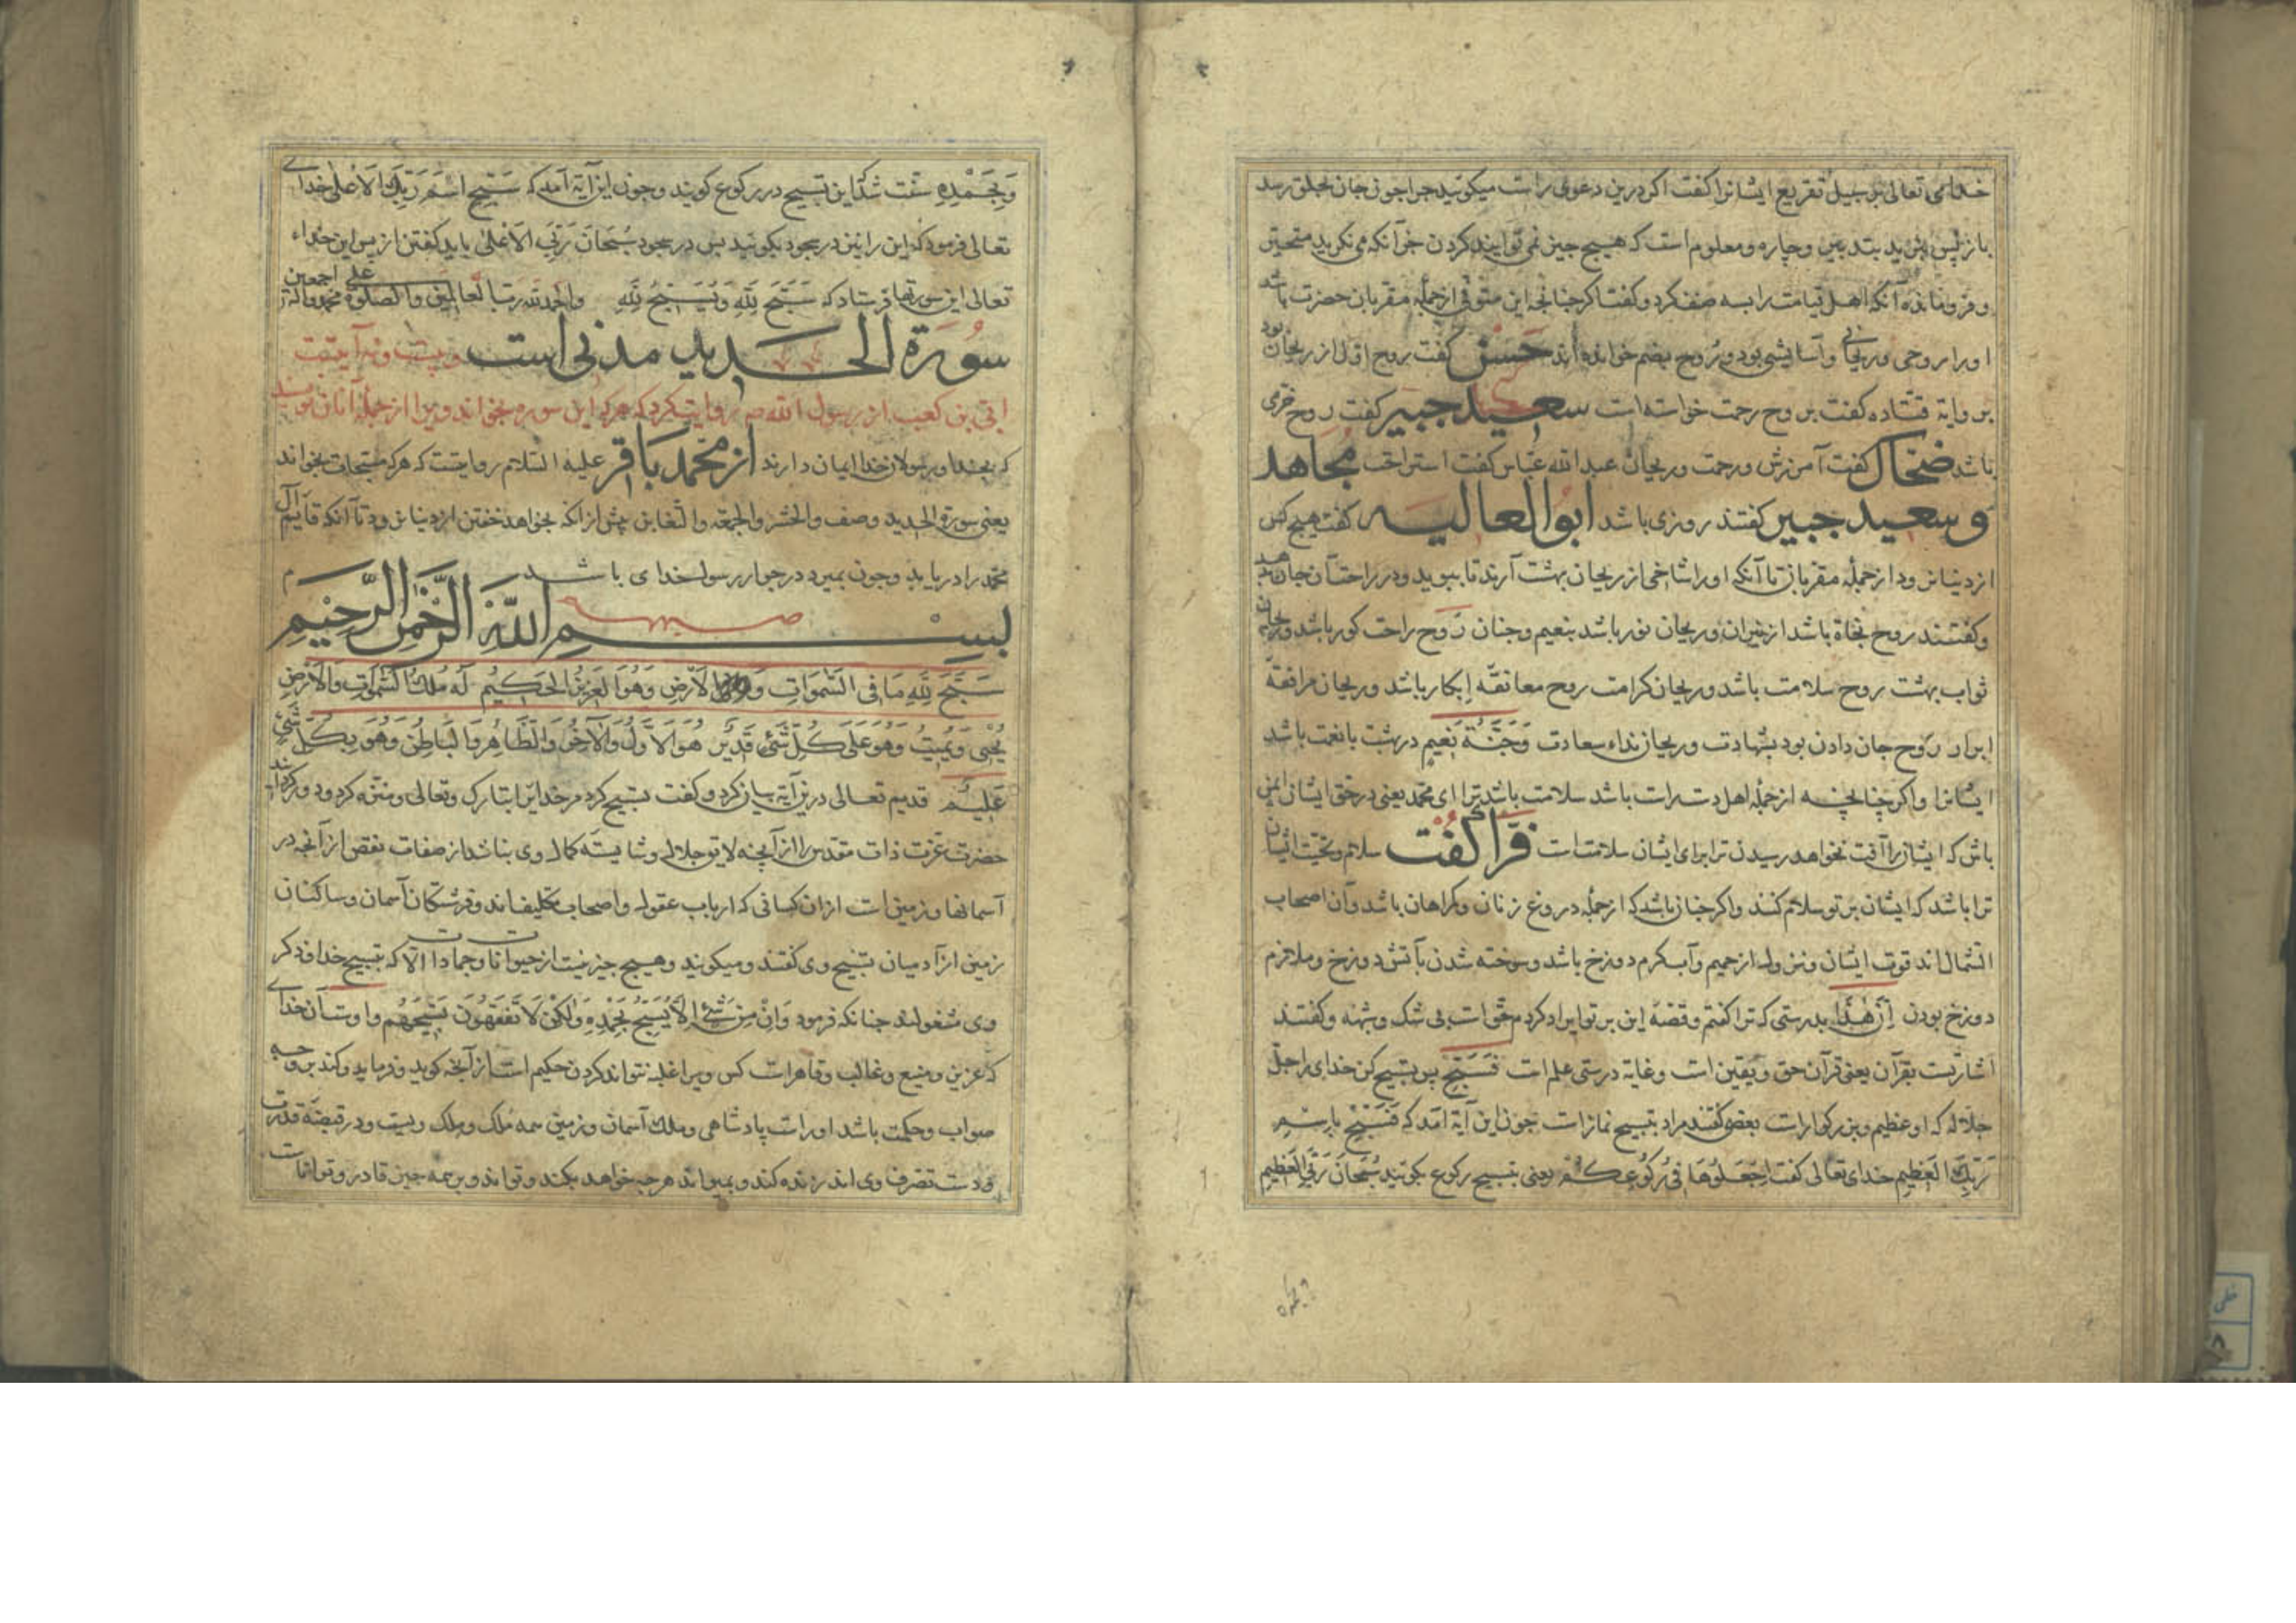 خدای تعالی بر سبیل تقریع ایشانرا کفت اکر درین دعوی راست میکوئید چرا چون جان بحلق رسد
باز پس بتدبیر وچاره ومعلوم است که هیچ چیز نمی توانید کردن جز آنکه می نکرید متحیر
وفرومانده آنکه اهل قیامت را به صنف کرد وکفت اکر چنانچه این متوفی از جمله مقربان حضرت باشد
اورا روحی وریحانی وآسایشی بود ورُوح بضم خوانده اند حسن کفت روح او از ریحان بود
بروایة قتاده کفت بروح رحمت خواسته است سعید جبیر کفت روح فرحی
باشد ضحاک کفت آمرزش ورحمت وریحان عبدالله عباس کفت استراحت مجاهد
وسعید جبیر کفتند روزی باشد ابوالعالیه کفت هیچ کس
از دنیا نرود از جمله مقربان تا آنکه اورا شاخی از ریحان بهشت آرند تا ببوید ودر راحت آن جان دهد
وکفتند روح نجاة باشد از نیران وریحان نور باشد بنعیم وجنان رَوح راحت کور باشد وریحان
ثواب بهشت روح سلامت باشد وریحان کرامت روح معانقهٔ ابکار باشد وریحان مرافقهٔ
ابرار رَوح جان دادن بود بشهادت وریحان نداء سعادت وَجَنَّةُ نَعِیمٍ در بهشت بانعمت باشد
ایشانرا واکر چنانچه از جمله اهل دست راست باشد سلامت باشد ترا ای محمد یعنی در حق ایشان ایمن
باش که ایشانرا آفت نخواهد رسیدن ترا برای ایشان سلامت است فرّا کفت سلام وتحیت ایشان
ترا باشد که ایشان بر تو سلام کنند واکر چنان باشد که از جمله دروغ زنان وکمراهان باشد وآن اصحاب
الشمال اند قوت ایشان ونزول از حمیم وآب کرم دوزخ باشد وسوخته شدن بآتش دوزخ وملازم
دوزخ بودن اِنَّ هٰذَا بدرستی که ترا کفتم وقصهٔ این بر تو ایراد کردم حق است بی شک وشبهه وکفتند
اشارتست بقرآن یعنی قرآن حق ویقین است وغایة درستی علم است فَسَبِّحْ پس تسبیح کن خدای را جل
جلاله که او عظیم وبزرکوار است بعضی کفتند مراد بتسبیح نماز است چون این آیة آمد که فَسَبِّحْ بِاسْمِ
رَبِّکَ الْعَظِیمِ خدای تعالی کفت اِجْعَلُوهَا فِی رُکُوعِکُمْ یعنی تسبیح رکوع بکوئید سُبْحَانَ رَبِّیَ الْعَظِیمِ
وَبِحَمْدِهِ سنت شد که این تسبیح در رکوع کویند وچون این آیة آمد که سَبِّحِ اسْمَ رَبِّکَ الْاَعْلَی خدای
تعالی فرمود که این را نیز در سجود بکوئید پس در سجود سُبْحَانَ رَبِّیَ الْاَعْلَی باید کفتن از پس این خداء
تعالی این سورتها فرستاد که سَبَّحَ لِلّٰهِ وَیُسَبِّحُ لِلّٰهِ والحمد لله رب العالمین والصلوة علی محمد وآله اجمعین
سورة الحدید مدنی است وبیست ونه آیتست
ابی بن کعب از رسول الله ص روایت کرد که هر که این سوره بخواند ویرا از جمله آنان نویسند
که بخدا ورسولان خدا ایمان دارند از محمد باقر علیه السلام روایتست که هر که مسبحات بخواند
یعنی سورة الحدید وصف والحشر والجمعه والتغابن پیش از آنکه بخواهد خفتن از دنیا نرود تا آنکه قایم آل
محمد را دریابد وچون بمیرد در جوار رسول خدای باشد
بسم الله الرحمن الرحیم
سَبَّحَ لِلّٰهِ مَا فِی السَّمٰوَاتِ وَالْاَرْضِ وَهُوَ الْعَزِیزُ الْحَکِیمُ لَهُ مُلْکُ السَّمٰوَاتِ وَالْاَرْضِ
یُحْیِی وَیُمِیتُ وَهُوَ عَلَی کُلِّ شَیْءٍ قَدِیرٌ هُوَ الْاَوَّلُ وَالْآخِرُ وَالظَّاهِرُ وَالْبَاطِنُ وَهُوَ بِکُلِّ شَیْءٍ
عَلِیمٌ قدیم تعالی درین آیة بیان کرد وکفت تسبیح کرد مر خدایرا تبارک وتعالی ومنزه کرد ودور کرد
حضرت عزت ذات مقدس را از آنچه لایق جلال وشایستهٔ کمال وی نباشد از صفات نقص از آنچه در
آسمانها وزمین است از آن کسانی که ارباب عقول واصحاب تکلیف اند وفرشتکان آسمان وساکنان
زمین از آدمیان تسبیح وی کفتند ومیکویند وهیچ چیز نیست از حیوانات وجمادات الا که بتسبیح خدا وذکر
وی مشغولند چنانکه فرمود وَاِنْ مِنْ شَیْءٍ اِلَّا یُسَبِّحُ بِحَمْدِهِ وَلٰکِنْ لَا تَفْقَهُونَ تَسْبِیحَهُمْ واوست آن خدای
که عزیز ومنیع وغالب وقاهر است کس ویرا غلبه نتواند کردن حکیم است از آنچه کوید وفرماید وکند بر وجه
صواب وحکمت باشد اوراست پادشاهی وملک آسمان وزمین همه مُلک ومِلک ویست ودر قبضهٔ قدرت
ودست تصرف وی اند زنده کند وبمیراند هر چه خواهد بکند وتواند وبر همه چیز قادر وتوانا است